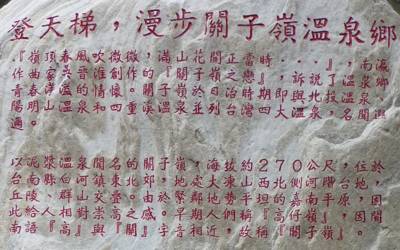 登天梯，漫步關子嶺溫泉鄉
『嶺頂春風吹微微，滿山花間正當時．．．』，南瀛
作曲家吳晉淮創作的『關子嶺之戀』，訴說了溫泉鄉
青春洋溢的情懷。關子嶺於日治時期即與北投、
陽明山和四重溪並列台灣四大溫泉，名聞遐
邇。
以泥漿溫泉聞名的關子嶺，海拔約２７０公尺，位於
台南縣白河鎮東北郊，地處
丘陵、群山交疊。由於緊鄰地勢平坦的嘉南平原，因
此給人相對崇高之感，早期
南語『高』與『關』字音相近，故稱『關子嶺』。